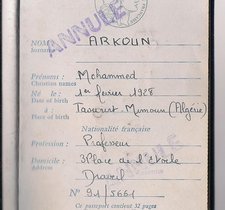 ANNULÉ
NOM: ARKOUN
Surname
Prénoms : Mohammed
Christian names
Né le : 1er février 1928
Date of birth
à : Taourirt Mimoun (Algérie)
Place of birth
Nationalité française
Profession : Professeur
Profession
Domicile : 3 Place de l'Etoile
address
Draveil
N° 91/5661
Ce passeport contient 32 pages